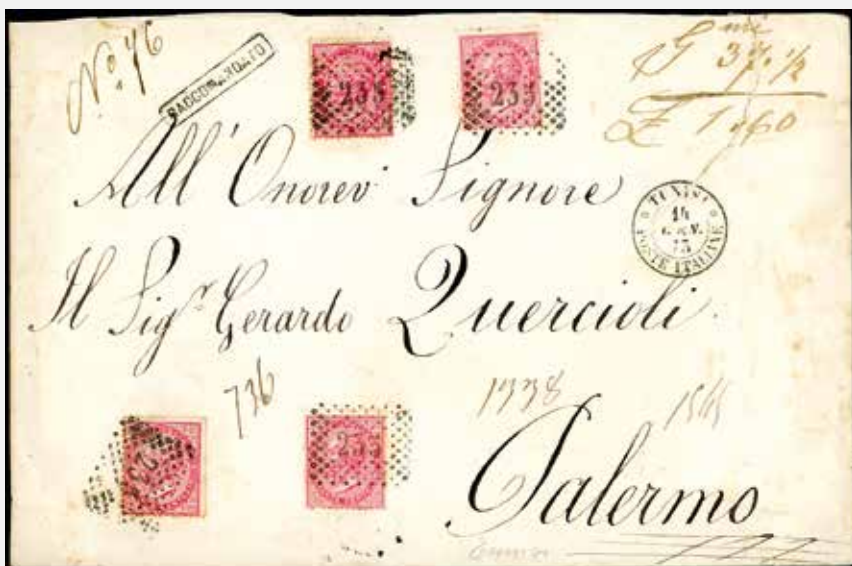 No. 76
RACCOMANDATO
235
235
Gmi 37.1/2
£ 1.60
All' Onorev. Signore
TUNISI
14
GEN.
73
POSTE ITALIANE
Il Sigr. Gerardo Quercioli
736
1338
235
235
Palermo